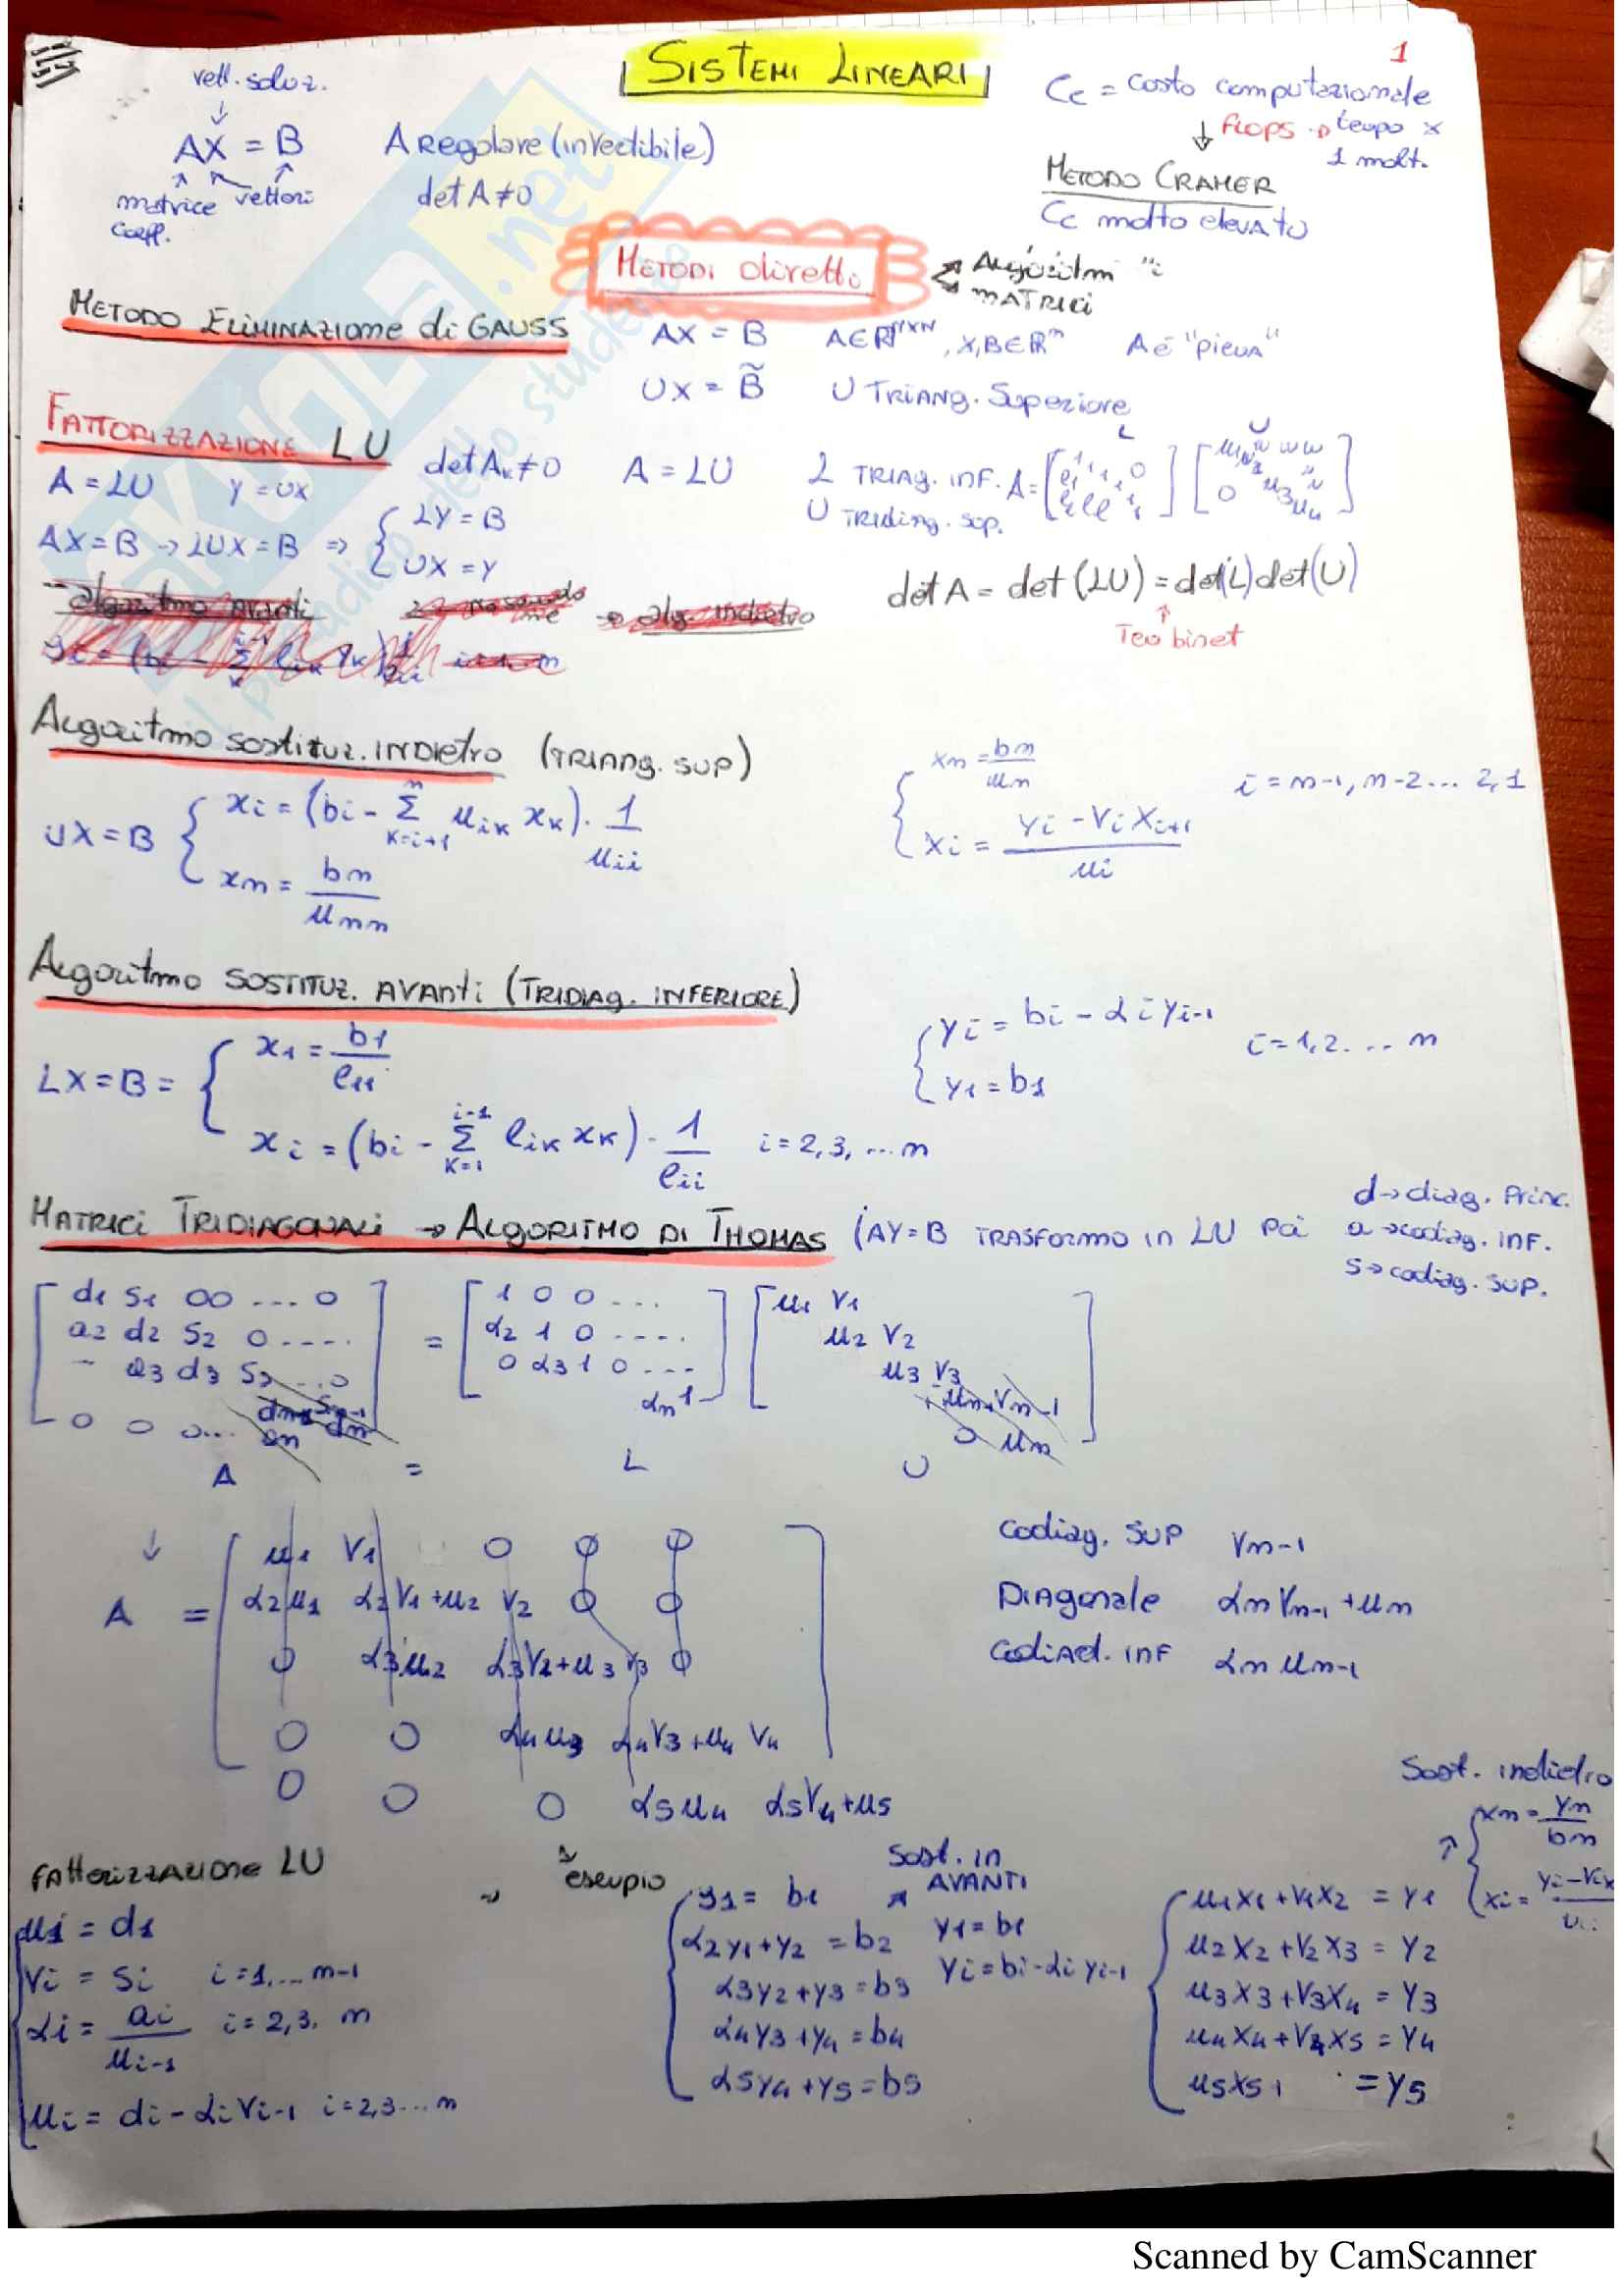 1
SISTEMI LINEARI
vett. soluz.
AX = B A Regolare (invertibile)
matrice vettori det A ≠ 0
coeff.
Cc = costo computazionale
↓ FLOPS → tempo x
1 molt.
METODO CRAMER
Cc molto elevato
METODI diretti
Algoritmi
MATRICI
METODO ELIMINAZIONE di GAUSS AX = B A∈R^nxn, X,B∈R^n A è "piena"
UX = B̃ U TRIANG. Superiore
FATTORIZZAZIONE LU det Aₖ≠0 A = LU L TRIAG. INF. A=
U TRIDiag. sup.
A = LU Y = UX
AX=B → LUX=B ⇒ { LY = B
UX = Y
det A = det (LU) = det(L) det(U)
Teo binet
Algoritmo sostituz. INDIETRO (TRIANG. SUP)
UX=B { xi = (bi - Σ k=i+1 n uik xk) · 1/uii
xn = bn/unn
{ xn = bn/un i = n-1, n-2 ... 2,1
xi = (yi - vi xi+1)/ui
Algoritmo SOSTITUZ. AVANTI (TRIDIAG. INFERIORE)
LX=B= { x1 = b1/l11
xi = (bi - Σ k=1 i-1 lik xk) · 1/lii i=2,3,...n
{ yi = bi - αi yi-1 i=1,2.... n
y1 = b1
MATRICI TRIDIAGONALI → ALGORITMO DI THOMAS (AY=B TRASFORMO in LU Poi
d → diag. Princ.
a → codiag. INF.
s → codiag. SUP.
d1 s1 0 0 .... 0 = 1 0 0 ... u1 v1
a2 d2 s2 0 .... α2 1 0 .... u2 v2
- a3 d3 s3 ...0 0 α3 1 0 ... u3 v3
αn 1 un-1 vn-1
0 0 0... an dn un
A = L U
↓
A = u1 v1 0 0 0
α2u1 α2v1+u2 v2 0 0
0 α3u2 α3v2+u3 v3 0
0 0 α4u3 α4v3+u4 v4
0 0 0 α5u4 α5v4+u5
Codiag. SUP vn-1
Diagonale αn vn-1 + un
Codiad. INF αn un-1
FAttorizzAzione LU
u1 = d1
vi = si i=1,...n-1
αi = ai/ui-1 i=2,3. n
ui = di - αi vi-1 i=2,3...n
→ esempio
{ y1 = b1
α2y1+y2 = b2
α3y2+y3=b3
α4y3+y4=b4
α5y4+y5=b5
Sost. in
AVANTI
y1=b1
yi=bi-αi yi-1
{ u1x1+v1x2 = y1
u2x2+v2x3 = y2
u3x3+v3x4 = y3
u4x4+v4x5 = y4
u5x5 = y5
Sost. indietro
{ xn = yn/bn
xi = yi-vix
Scanned by CamScanner